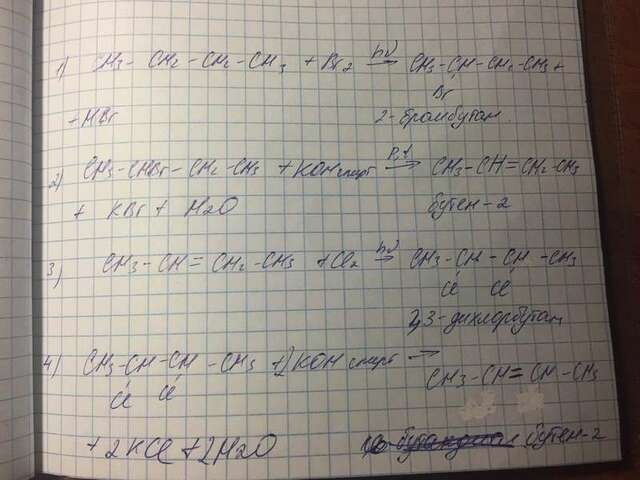 1) CH3 - CH2 - CH2 - CH3 + Br2 hν→ CH3-CH-CH2-CH3 +
Br
+ HBr 2-бромбутан.
2) CH3-CHBr-CH2-CH3 + KOH спирт P,t→ CH3-CH=CH2-CH3
+ KBr + H2O бутен-2
3) CH3-CH=CH2-CH3 + Cl2 hν→ CH3-CH-CH-CH3
Cl Cl
2,3-дихлорбутан
4) CH3-CH-CH-CH3 + 2KOH спирт → CH3-CH=CH-CH3
Cl Cl
+ 2KCl + 2H2O бутен-2